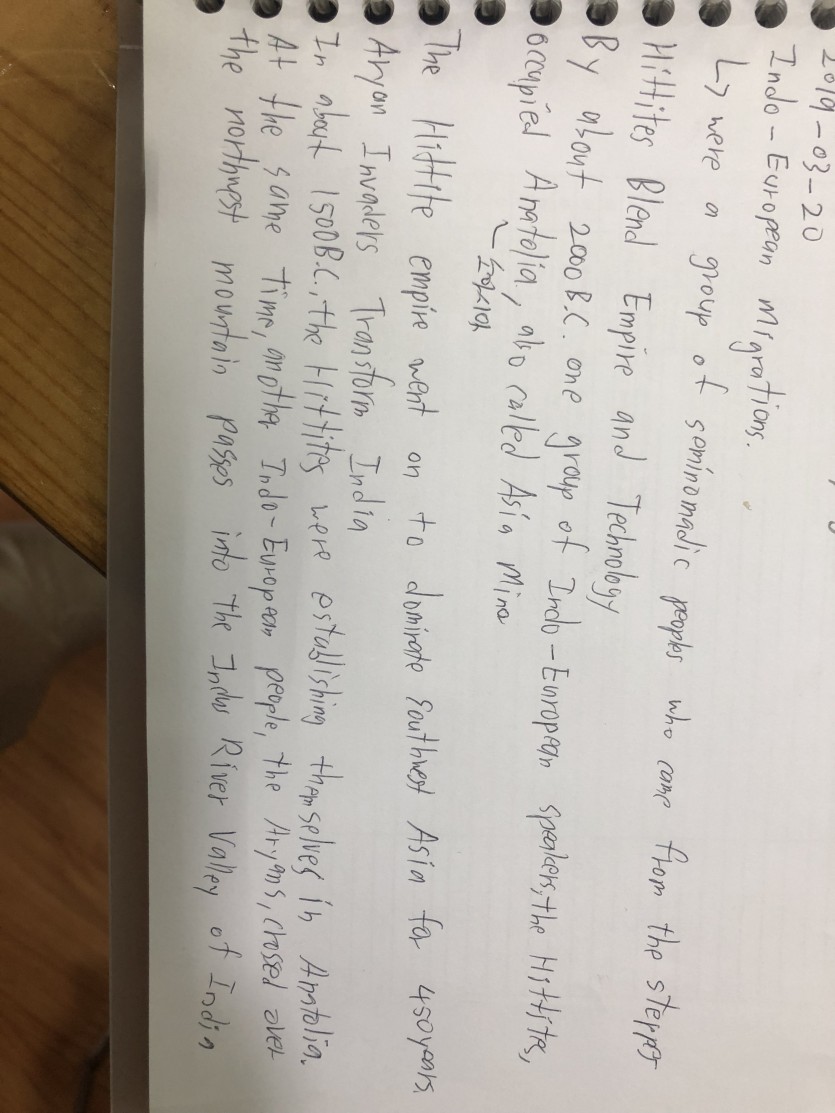 2019-03-20
Indo-European Migrations.
↳ were a group of seminomadic peoples who came from the steppes
Hittites Blend Empire and Technology
By about 2000 B.C. one group of Indo-European speakers, the Hittites,
occupied Anatolia, also called Asia Mino
The Hittite empire went on to dominate Southwest Asia for 450years.
Aryan Invaders Transform India
In about 1500B.C., the Hittites were establishing themselves in Anatolia.
At the same time, another Indo-European people, the Aryans, crossed over
the northwest mountain passes into the Indus River Valley of India